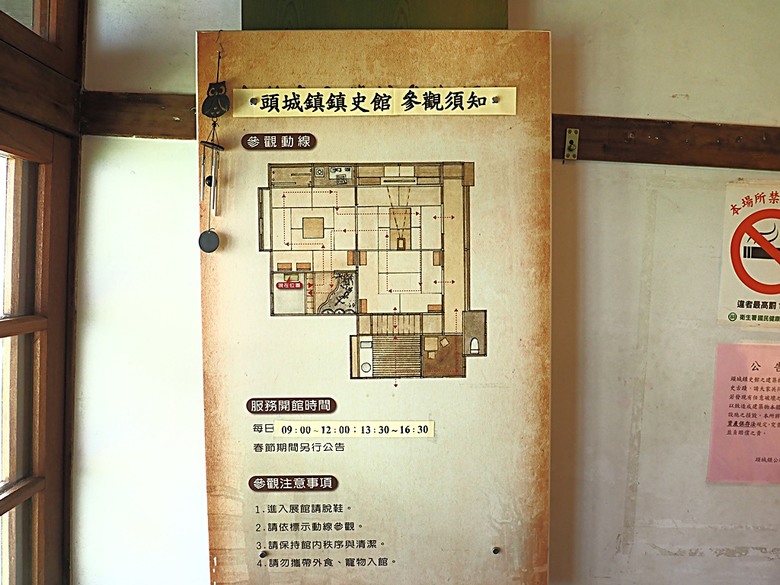 頭城鎮鎮史館 參觀須知
參觀動線
現在位置
服務開館時間
每日 09:00~12:00；13:30~16:30
春節期間另行公告
參觀注意事項
1.進入展館請脫鞋。
2.請依標示動線參觀。
3.請保持館內秩序與清潔。
4.請勿攜帶外食、寵物入館。
本場所禁
違者最高罰
衛生署國民健康
公告